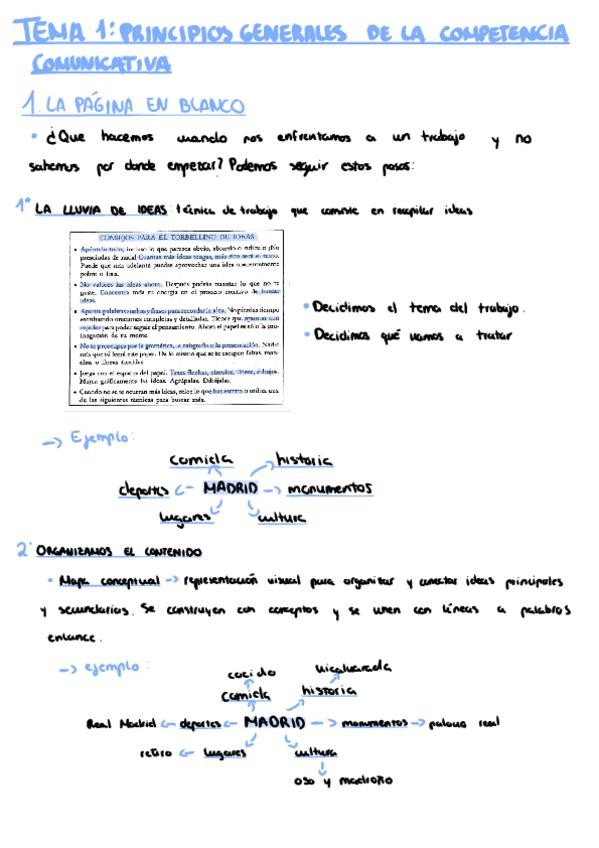 TEMA 1: PRINCIPIOS GENERALES DE LA COMPETENCIA
COMUNICATIVA
1. LA PÁGINA EN BLANCO
• ¿Que hacemos cuando nos enfrentamos a un trabajo y no
sabemos por donde empezar? Podemos seguir estos pasos:
1º LA LLUVIA DE IDEAS: técnica de trabajo que consiste en recopilar ideas
CONSEJOS PARA EL TORBELLINO DE IDEAS
• Apúntalo todo, incluso lo que parezca obvio, absurdo o ridículo ¡No
prescindas de nada! Cuantas más ideas tengas, más rico será el texto.
Puede que más adelante puedas aprovechar una idea aparentemente
pobre o loca.
• No valores las ideas ahora. Después podrás recortar lo que no te
guste. Concentra toda tu energía en el proceso creativo de buscar
ideas.
• Apunta palabras sueltas y frases para recordar la idea. No pierdas tiempo
escribiendo oraciones completas y detalladas. Tienes que apuntar con
rapidez para poder seguir el pensamiento. Ahora el papel es sólo la pro-
longación de tu mente.
• No te preocupes por la gramática, la caligrafía o la presentación. Nadie
más que tú leerá este papel. Da lo mismo que se te escapen faltas, man-
chas o líneas torcidas.
• Juega con el espacio del papel. Traza flechas, círculos, líneas, dibujos.
Marca gráficamente las ideas. Agrúpalas. Dibújalas.
• Cuando no se te ocurran más ideas, relee lo que has escrito o utiliza una
de las siguientes técnicas para buscar más.
• Decidimos el tema del trabajo.
• Decidimos qué vamos a tratar
→ Ejemplo:
comida historia
deportes ← MADRID → monumentos
lugares cultura
2º ORGANIZAMOS EL CONTENIDO
• Mapa conceptual → representación visual para organizar y conectar ideas principales
y secundarias. Se construyen con conceptos y se unen con líneas a palabras
enlance.
→ ejemplo:
cocido
comida historia
Real Madrid ← deportes ← MADRID → monumentos → palacio real
retiro ← lugares cultura
oso y madroño